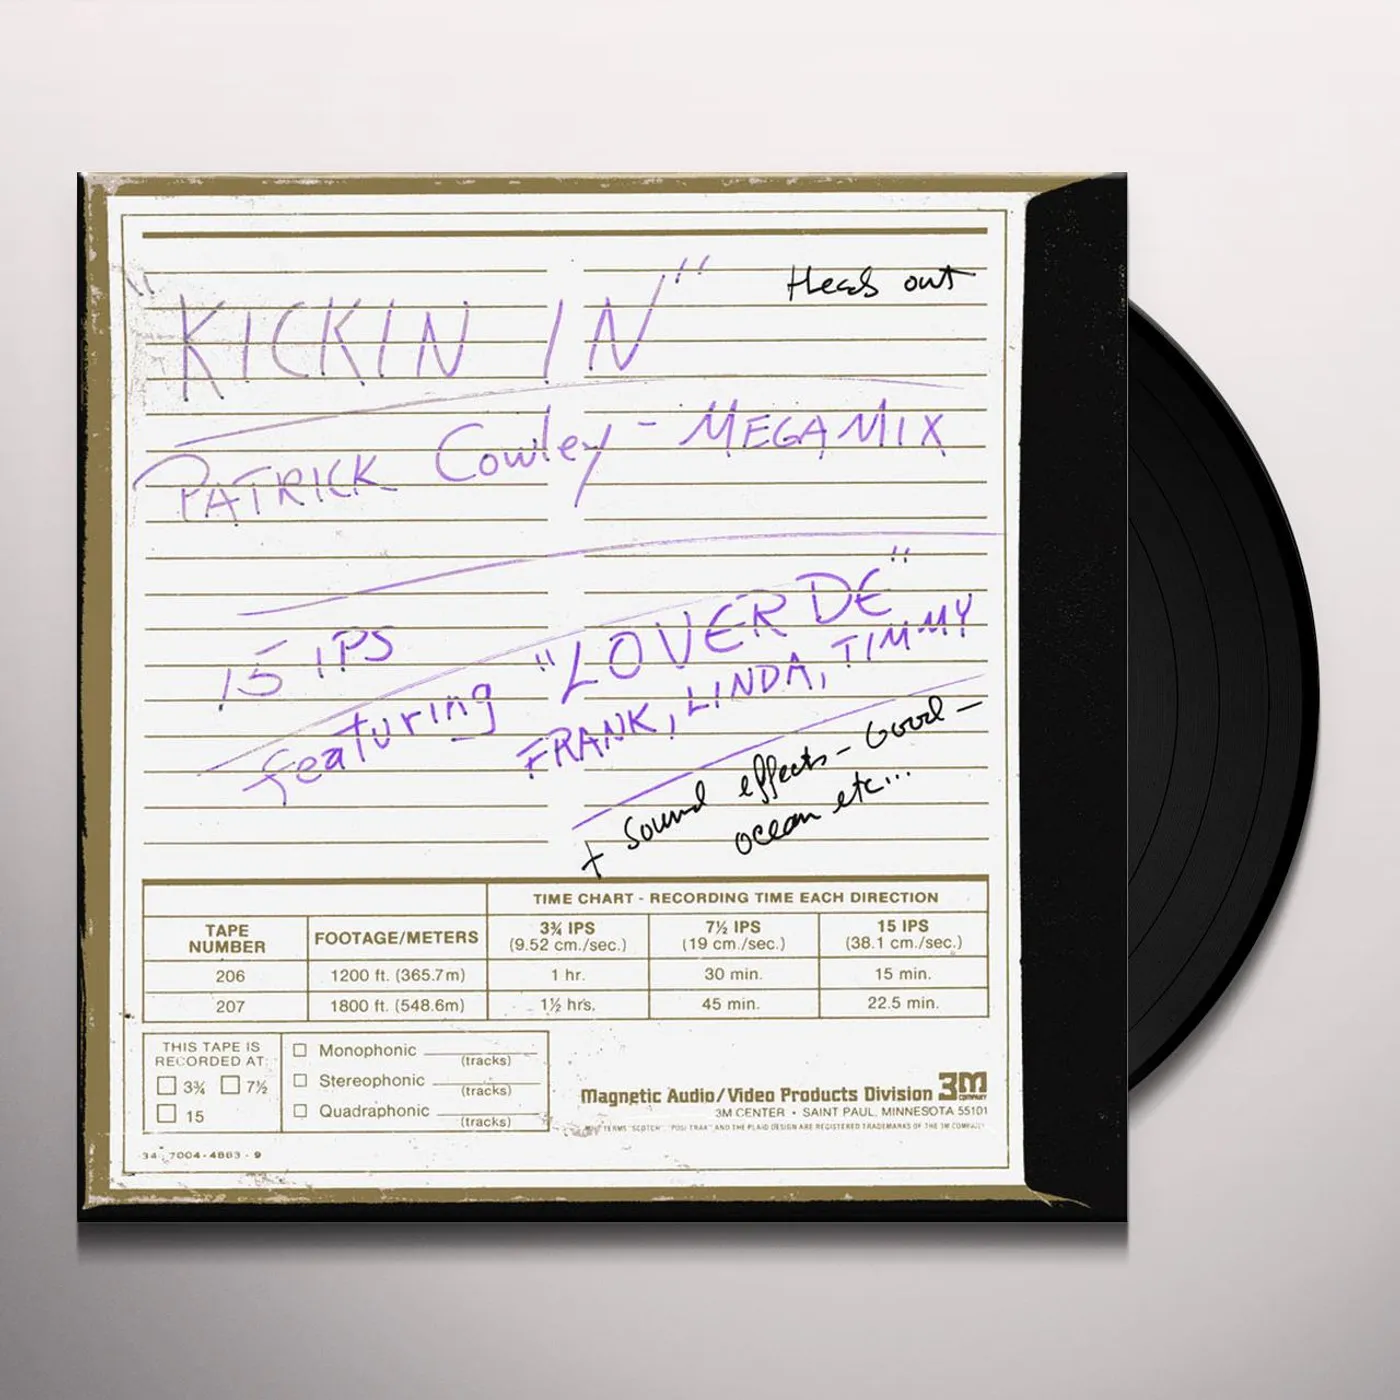 "KICKIN IN"
Heads out
PATRICK Cowley - MEGAMIX
15 IPS
featuring "LOVERDE"
FRANK, LINDA, TIMMY
+ Sound effects - Good -
ocean etc...
TIME CHART - RECORDING TIME EACH DIRECTION
TAPE NUMBER FOOTAGE/METERS 3¾ IPS (9.52 cm./sec.) 7½ IPS (19 cm./sec.) 15 IPS (38.1 cm./sec.)
206 1200 ft. (365.7m) 1 hr. 30 min. 15 min.
207 1800 ft. (548.6m) 1½ hrs. 45 min. 22.5 min.
THIS TAPE IS
RECORDED AT:
3¾ 7½
15
Monophonic
(tracks)
Stereophonic
(tracks)
Quadraphonic
(tracks)
Magnetic Audio/Video Products Division 3M COMPANY
3M CENTER • SAINT PAUL, MINNESOTA 55101
TERMS "SCOTCH", "POSI-TRAK" AND THE PLAID DESIGN ARE REGISTERED TRADEMARKS OF THE 3M COMPANY
34-7004-4883-9